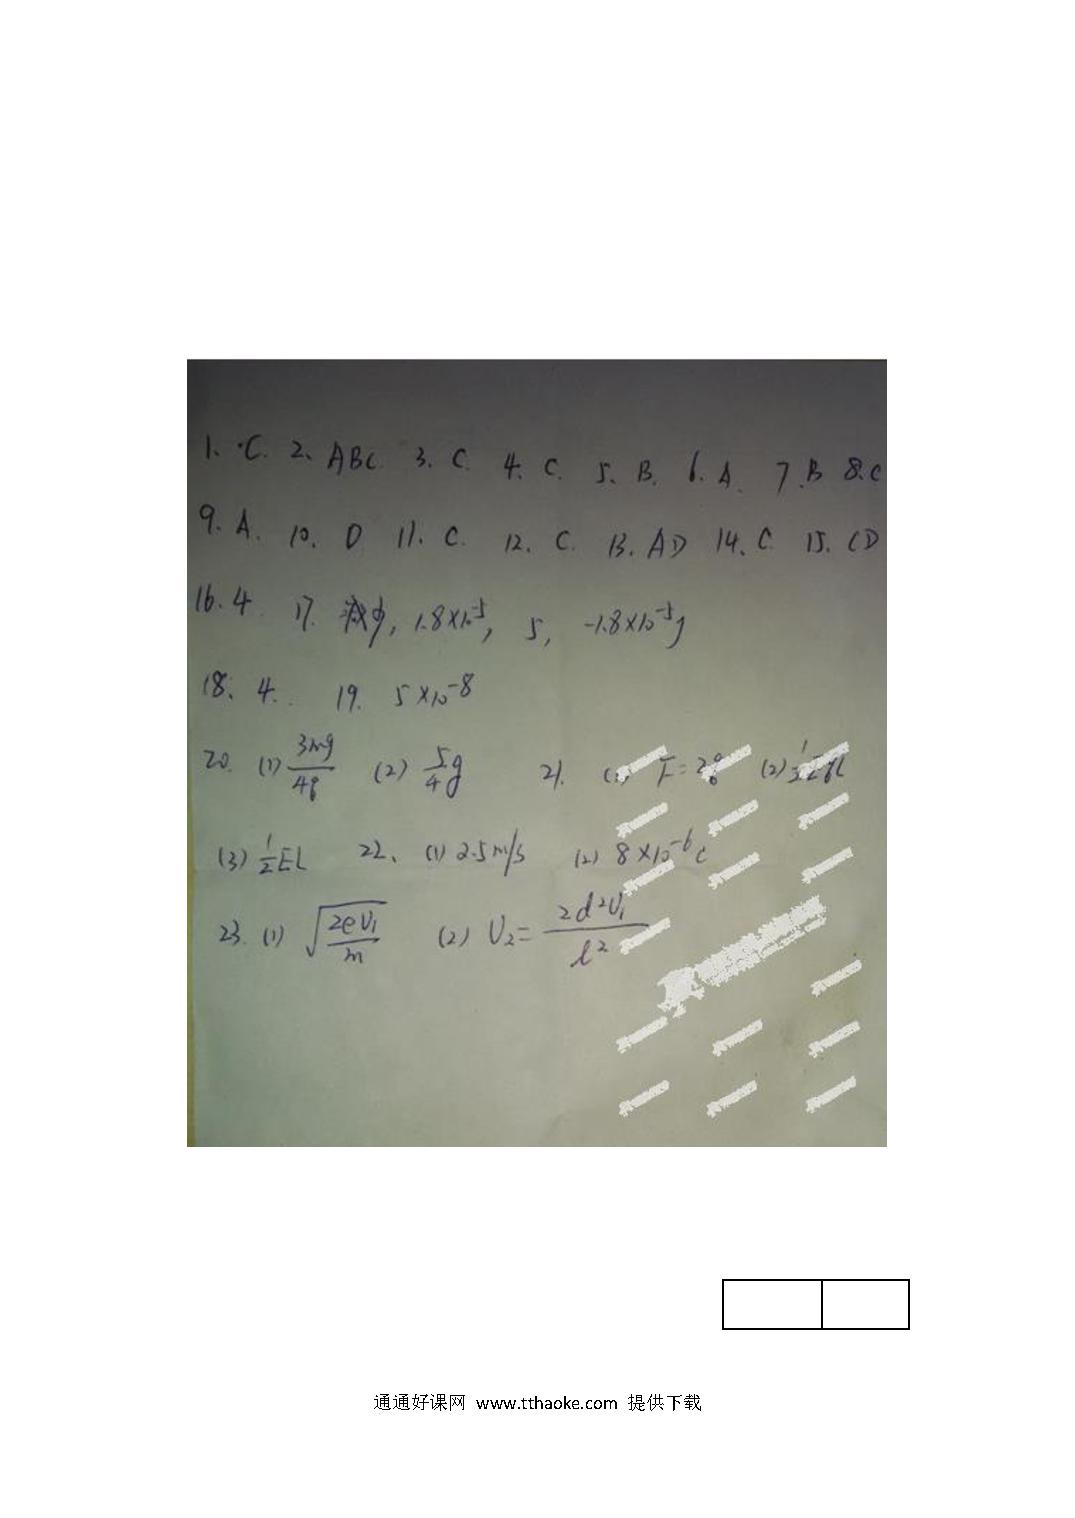 1. C. 2、ABC 3. C. 4. C. 5、B. 6. A. 7. B 8. C
9. A. 10. D 11. C. 12. C. 13. AD 14. C. 15. CD
16. 4. 17. 减少, 1.8×10⁻⁵, 5, -1.8×10⁻⁵J
18、4. 19. 5×10⁻⁸
20. (1) 3mg/4q (2) 5/4 g 21. F= (2) 1/2
(3) 1/2 EL 22、(1) 2.5m/s (2) 8×10⁻⁶C
23. (1) √(2eU₁/m) (2) U₂= 2d²U₁/l²
通通好课网 www.tthaoke.com 提供下载